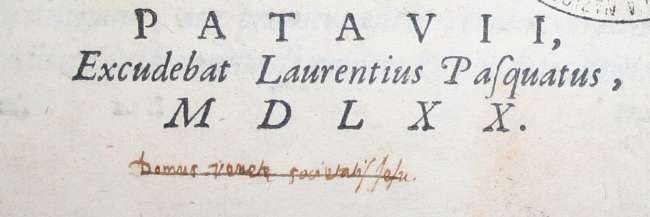 PATAVII,
Excudebat Laurentius Paſquatus,
MDLXX.
Domus venetę societatis Jesu.